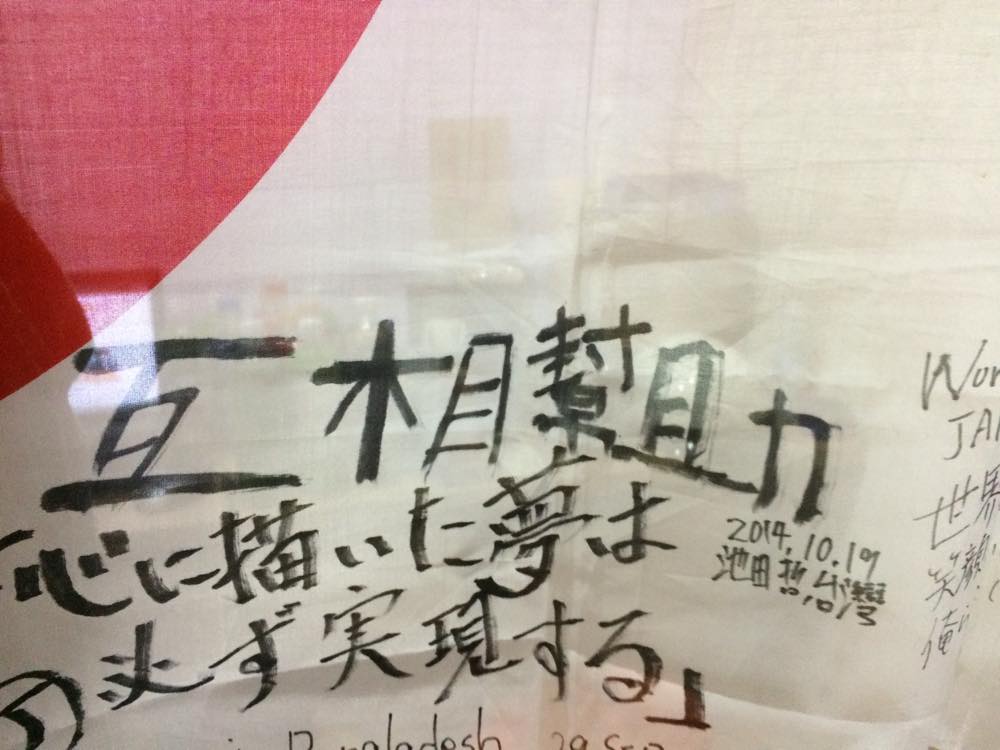 互相幫助
心に描いた夢は
必ず実現する」
2014.10.19
池田 哲
Wor
JA
世界
笑顔
俺
Bangladesh 29 Sep